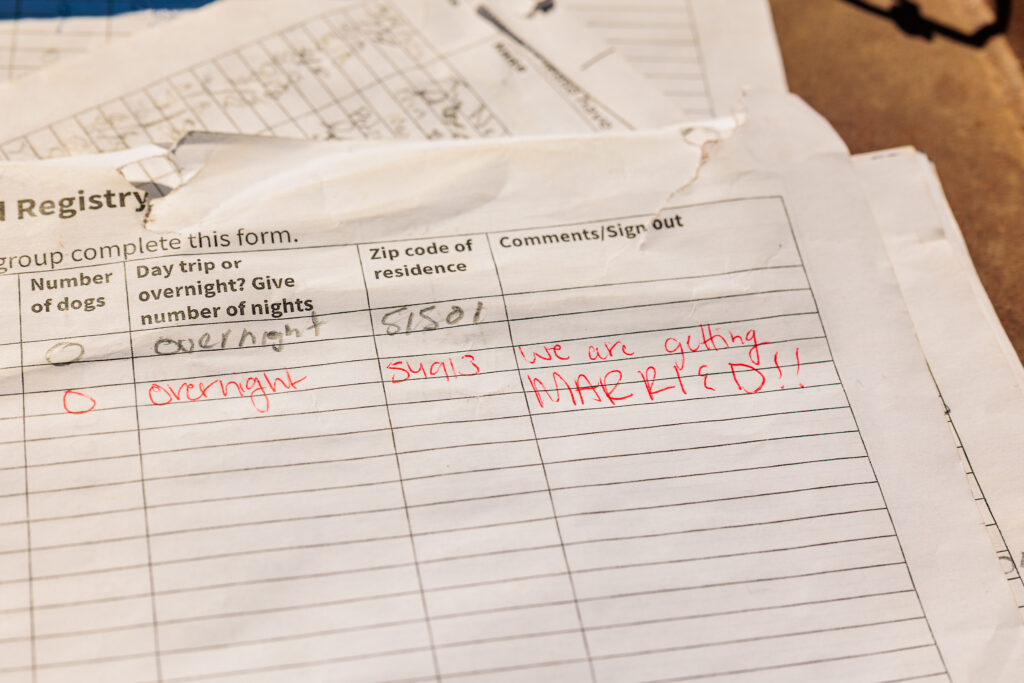 Registry
group complete this form.
Number of dogs
Day trip or overnight? Give number of nights
Zip code of residence
Comments/Sign out
0 overnight 51501
0 overnight 54913 We are getting
MARRIED!!
have